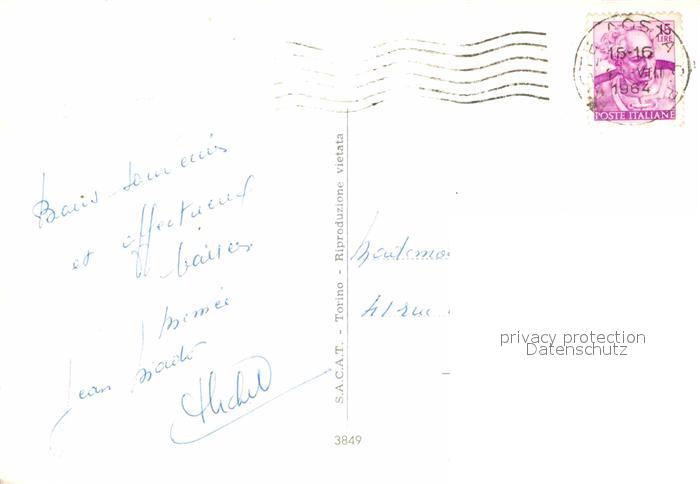 Bons souvenirs
et affectueux
baisers
Jean
Michel
S.A.C.A.T. - Torino - Riproduzione vietata
3849
41 rue
15
LIRE
15-16
VIII
1964
POSTE ITALIANE
privacy protection
Datenschutz